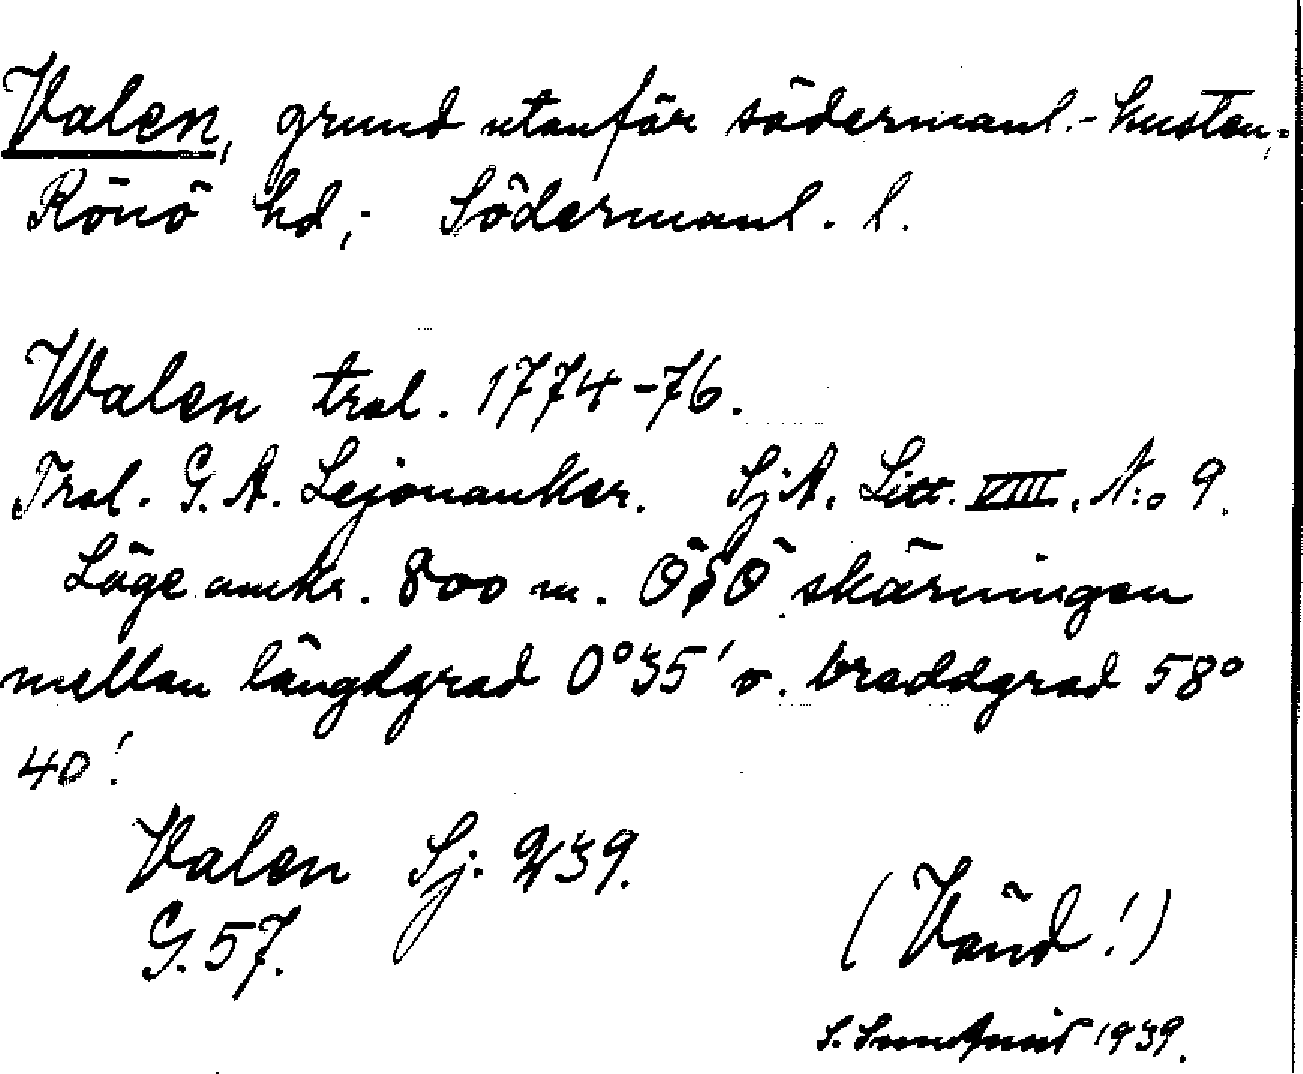 Valen, grund utanför södermanl.-kusten,-
Rönö hd,- Södermanl. l.
Walen tral. 1774-76.
Tral. G. A. Lejonanker. SjA. Litt. VIII. N:o 9.
Läge omkr. 800 m. ÖSÖ skärningen
mellan längdgrad 0°35' o. breddgrad 58°
40'.
Valen Sj. 9/39.
G. 57.
(Vänd!)
S. Sundqvist 1939.